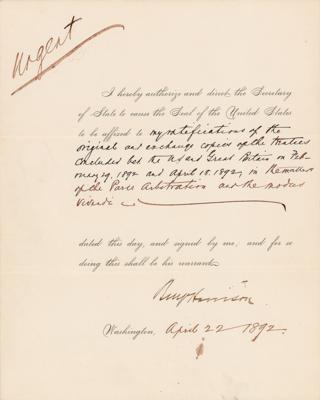 Urgent
I hereby authorize and direct the Secretary
of State to cause the Seal of the United States
to be affixed to my ratifications of the
original and exchange copies of the treaties
concluded bet. the US and Great Britain on Feb-
ruary 29, 1892 and April 18, 1892, in the matter
of the Paris Arbitration and the modus
vivendi
dated this day, and signed by me, and for so
doing this shall be his warrant.
Benj Harrison
Washington, April 22 - 1892.